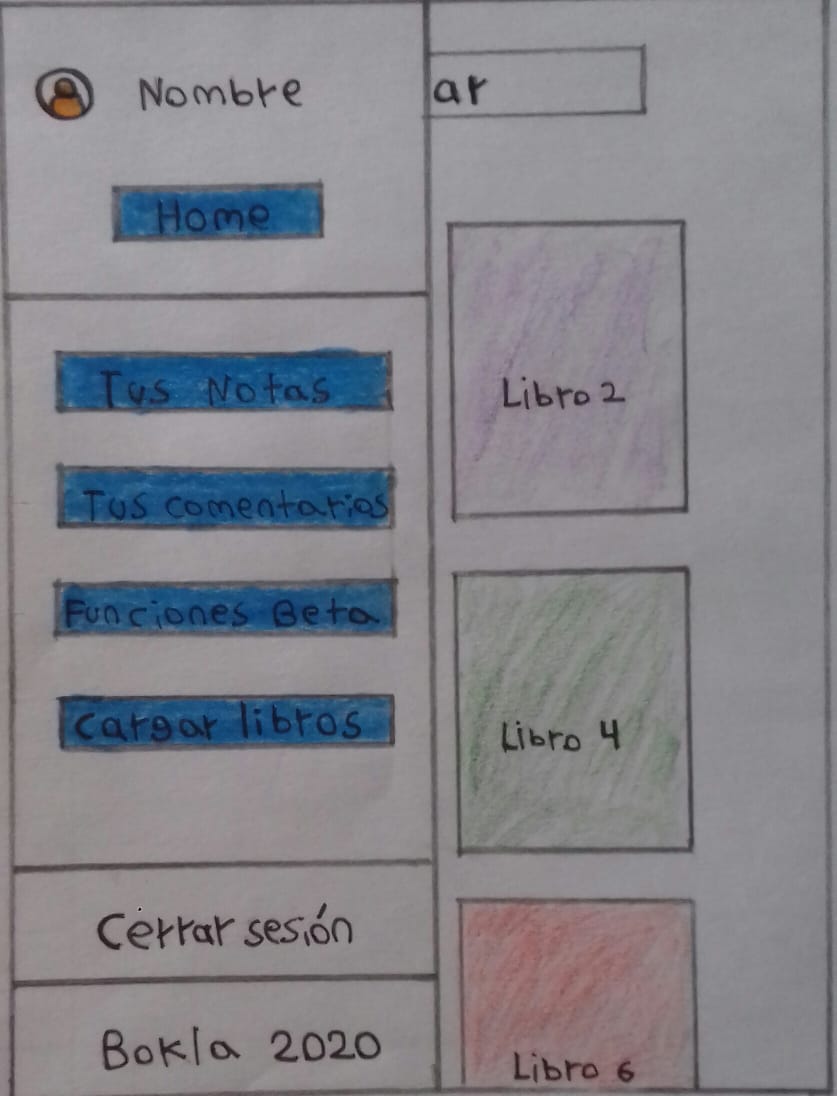 Nombre
Home
Tus Notas
Tus comentarios
Funciones Beta
Cargar libros
Cerrar sesión
Bokla 2020
ar
Libro 2
Libro 4
Libro 6